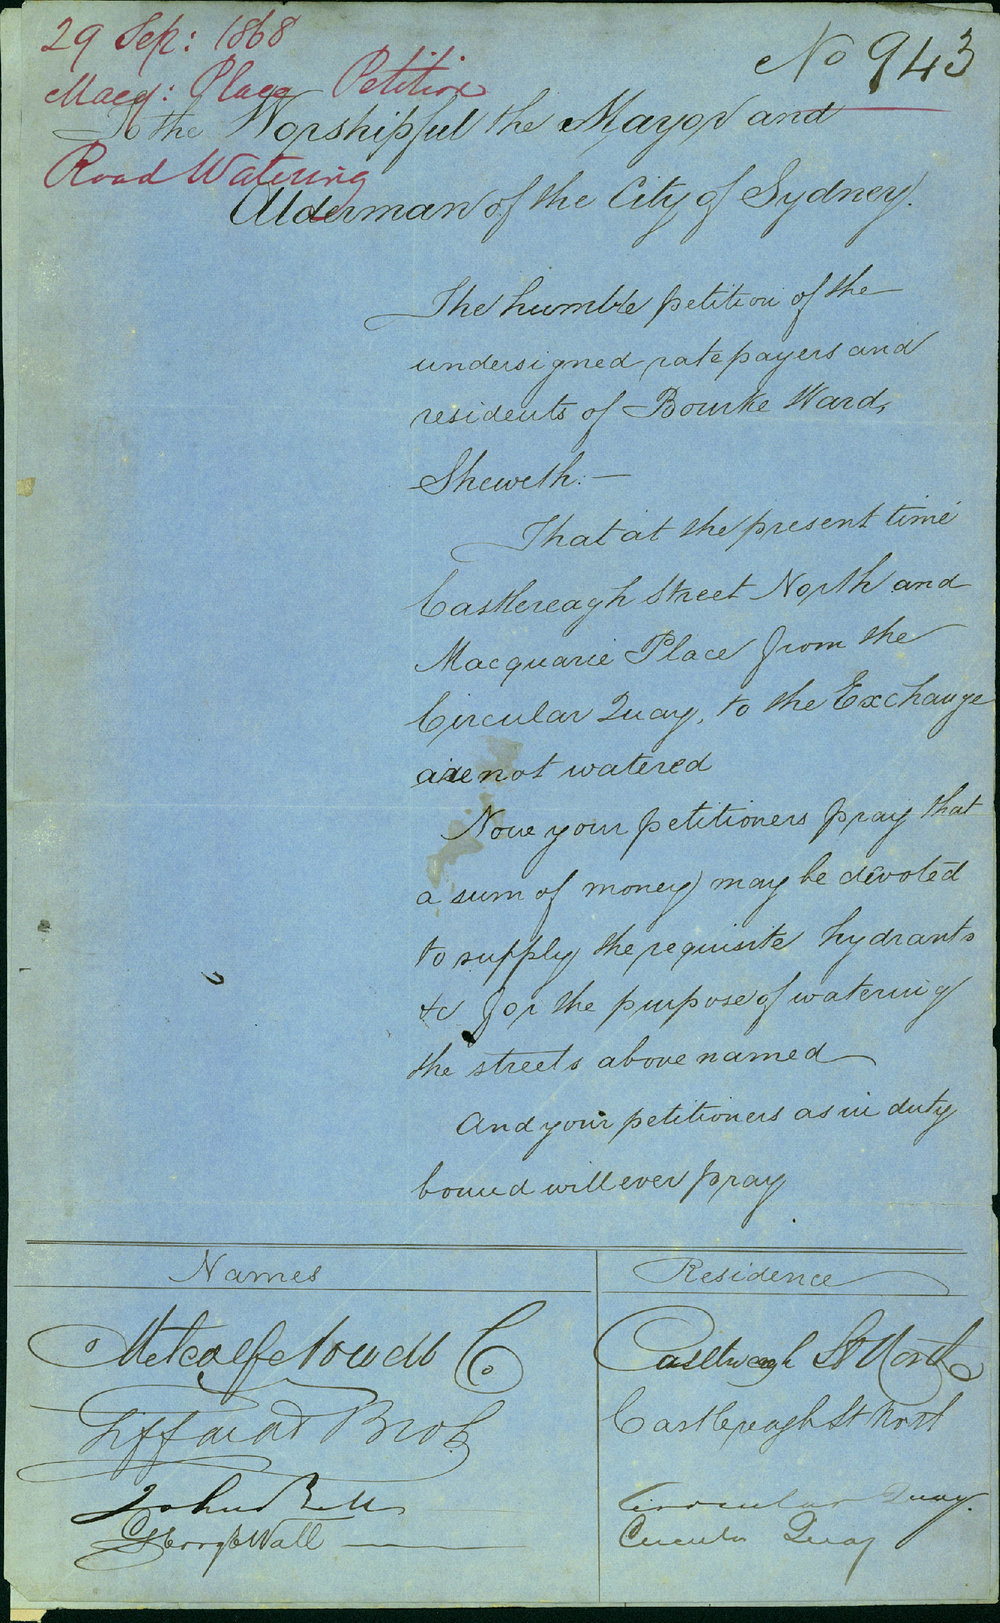 29 Sep: 1868
No 943
Macq: Place Petition
To the Worshipful the Mayor and
Road Watering
Alderman of the City of Sydney.
The humble petition of the
undersigned ratepayers and
residents of Bourke Ward,
Sheweth:—
That at the present time
Castlereagh Street North and
Macquarie Place from the
Circular Quay, to the Exchange
are not watered
Now your petitioners pray that
a sum of money may be devoted
to supply the requisite hydrants
&c for the purpose of watering
the streets above named
And your petitioners as in duty
bound will ever pray
Names Residence
Metcalfe Co Castlereagh St North
Bros Castlereagh St North
John Circular Quay.
George Wall Circular Quay